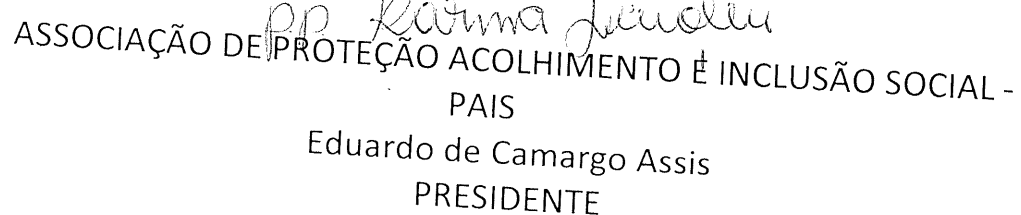 pp Karina
ASSOCIAÇÃO DE PROTEÇÃO ACOLHIMENTO E INCLUSÃO SOCIAL -
PAIS
Eduardo de Camargo Assis
PRESIDENTE